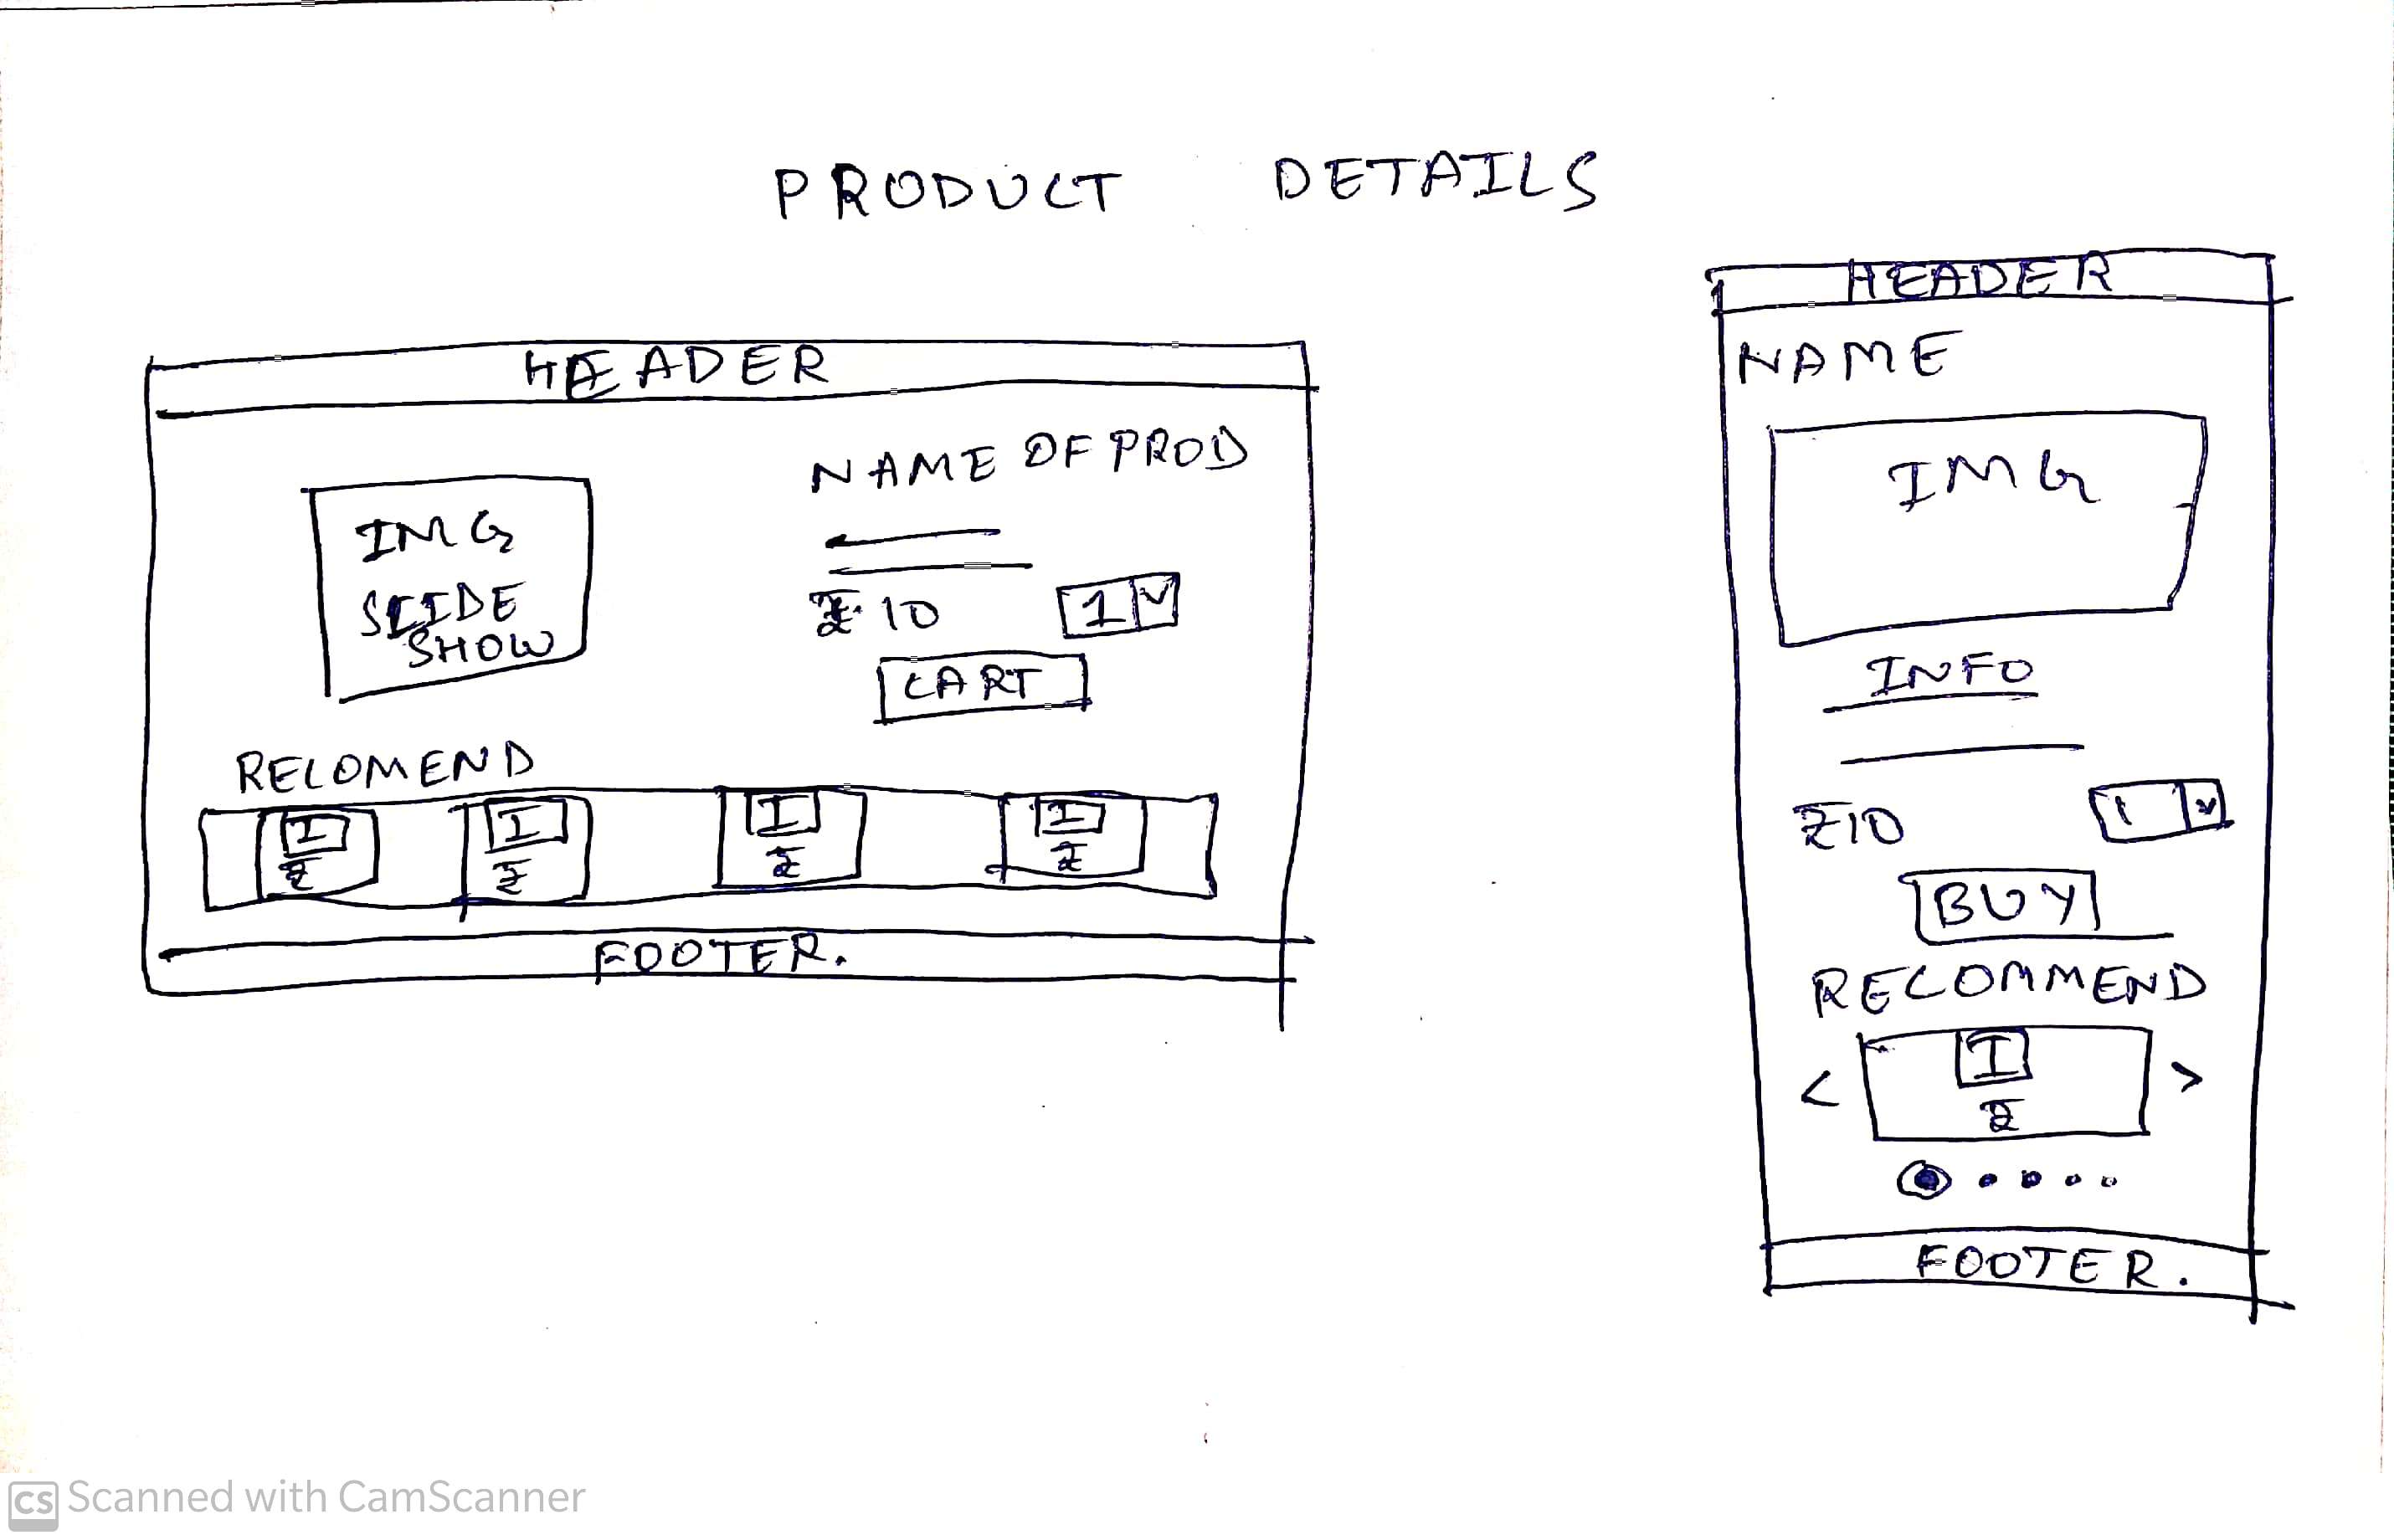 PRODUCT DETAILS
HEADER
NAME OF PROD
IMG
SLIDE
SHOW
₹ 10
1 v
CART
RECOMEND
I I I I
₹ ₹ ₹ ₹
FOOTER.
HEADER
NAME
IMG
INFO
₹10
1 v
BUY
RECOMMEND
< I >
₹
FOOTER.
CS Scanned with CamScanner